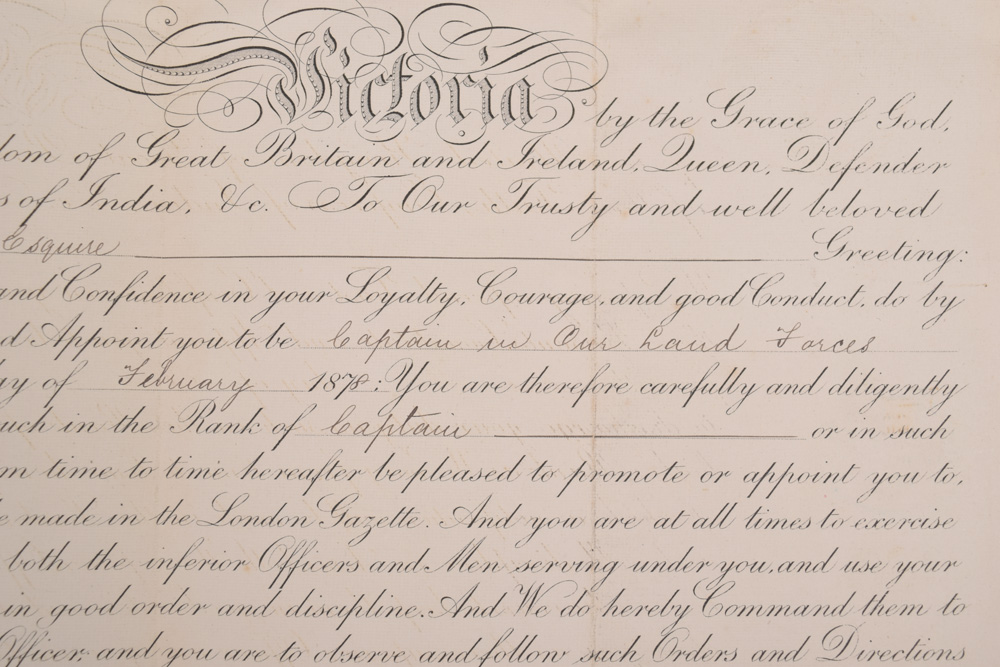 Victoria by the Grace of God,
dom of Great Britain and Ireland, Queen, Defender
s of India, &c. To Our Trusty and well beloved
Esquire Greeting:
and Confidence in your Loyalty, Courage, and good Conduct, do by
d Appoint you to be Captain in Our Land Forces
ay of February 1878: You are therefore carefully and diligently
uch in the Rank of Captain or in such
m time to time hereafter be pleased to promote or appoint you to,
e made in the London Gazette. And you are at all times to exercise
both the inferior Officers and Men serving under you, and use your
in good order and discipline. And We do hereby Command them to
Officer: and you are to observe and follow such Orders and Directions